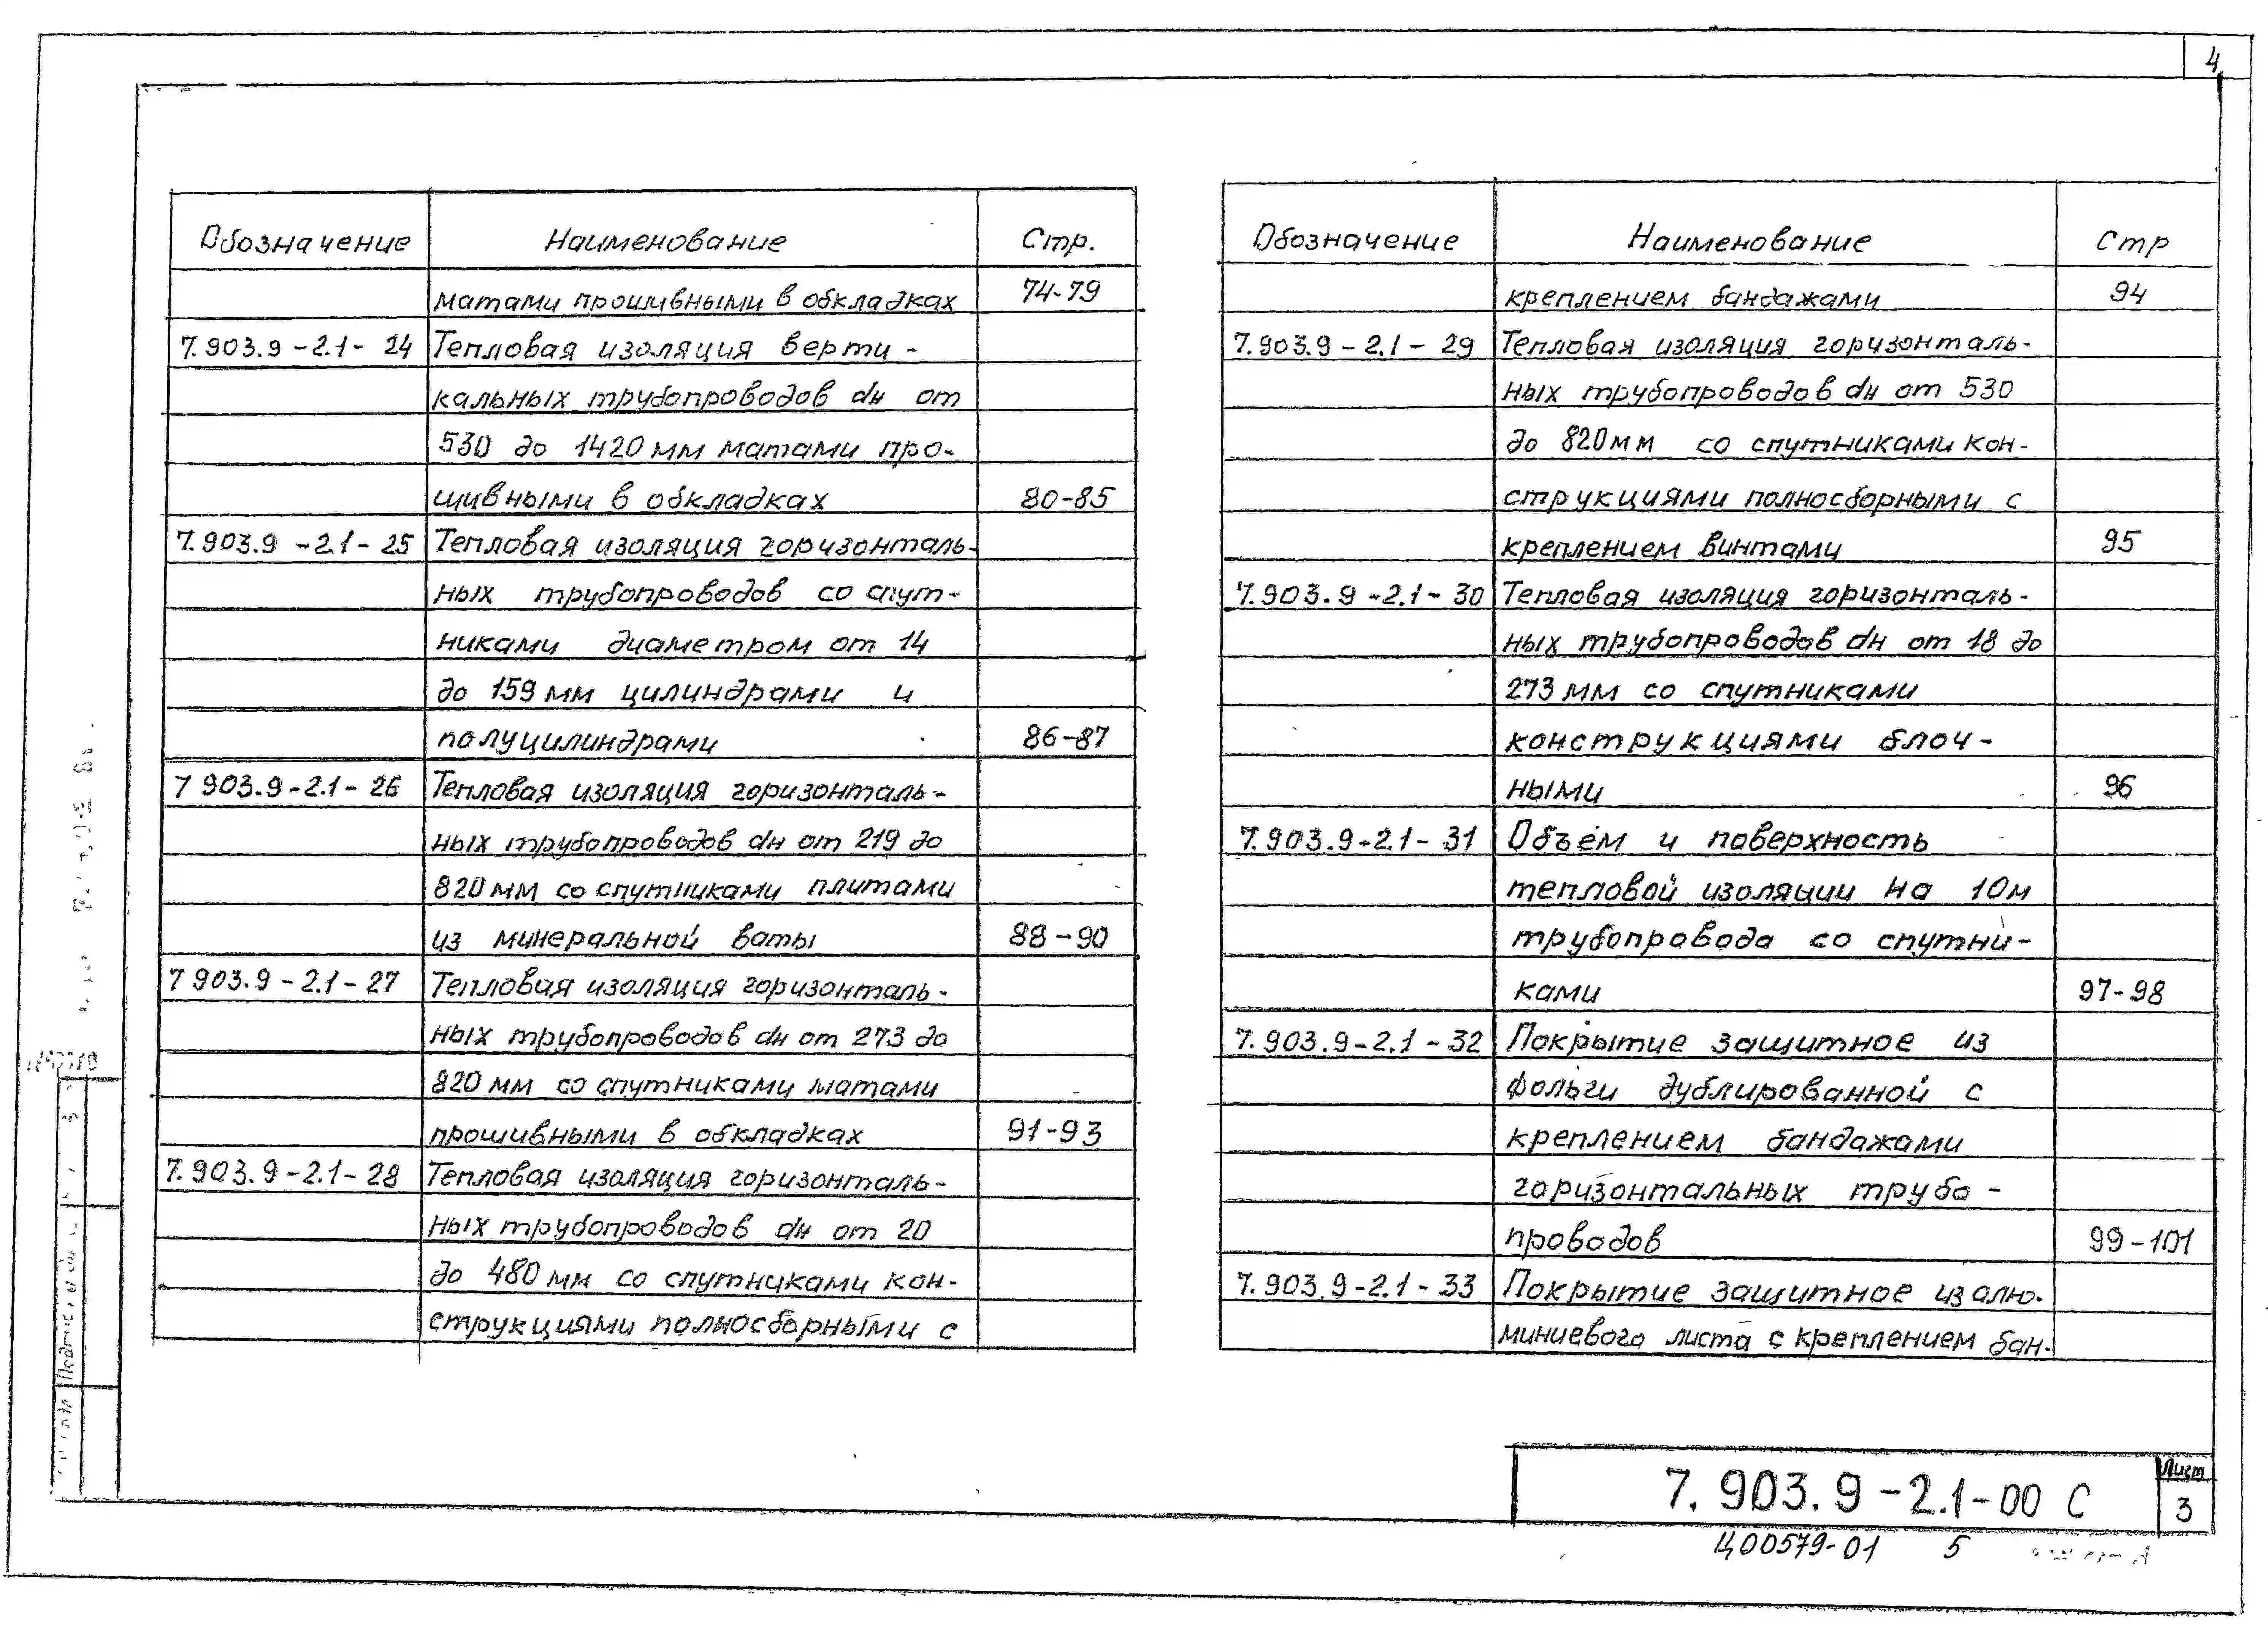 4
Обозначение Наименование Стр.
матами прошивными в обкладках 74-79
7.903.9-2.1-24 Тепловая изоляция верти-
кальных трубопроводов dн от
530 до 1420 мм матами про-
шивными в обкладках 80-85
7.903.9-2.1-25 Тепловая изоляция горизонталь-
ных трубопроводов со спут-
никами диаметром от 14
до 159 мм цилиндрами и
полуцилиндрами 86-87
7 903.9-2.1-26 Тепловая изоляция горизонталь-
ных трубопроводов dн от 219 до
820 мм со спутниками плитами
из минеральной ваты 88-90
7 903.9-2.1-27 Тепловая изоляция горизонталь-
ных трубопроводов dн от 273 до
820 мм со спутниками матами
прошивными в обкладках 91-93
7.903.9-2.1-28 Тепловая изоляция горизонталь-
ных трубопроводов dн от 20
до 480 мм со спутниками кон-
струкциями полносборными с
Обозначение Наименование Стр
креплением бандажами 94
7.903.9-2.1-29 Тепловая изоляция горизонталь-
ных трубопроводов dн от 530
до 820мм со спутниками кон-
струкциями полносборными с
креплением винтами 95
7.903.9-2.1-30 Тепловая изоляция горизонталь-
ных трубопроводов dн от 18 до
273 мм со спутниками
конструкциями блоч-
ными 96
7.903.9-2.1-31 Объём и поверхность
тепловой изоляции на 10м
трубопровода со спутни-
ками 97-98
7.903.9-2.1-32 Покрытие защитное из
фольги дублированной с
креплением бандажами
горизонтальных трубо-
проводов 99-101
7.903.9-2.1-33 Покрытие защитное из алю-
миниевого листа с креплением бан-
7.903.9-2.1-00 С
Лист
3
Ц00579-01 5